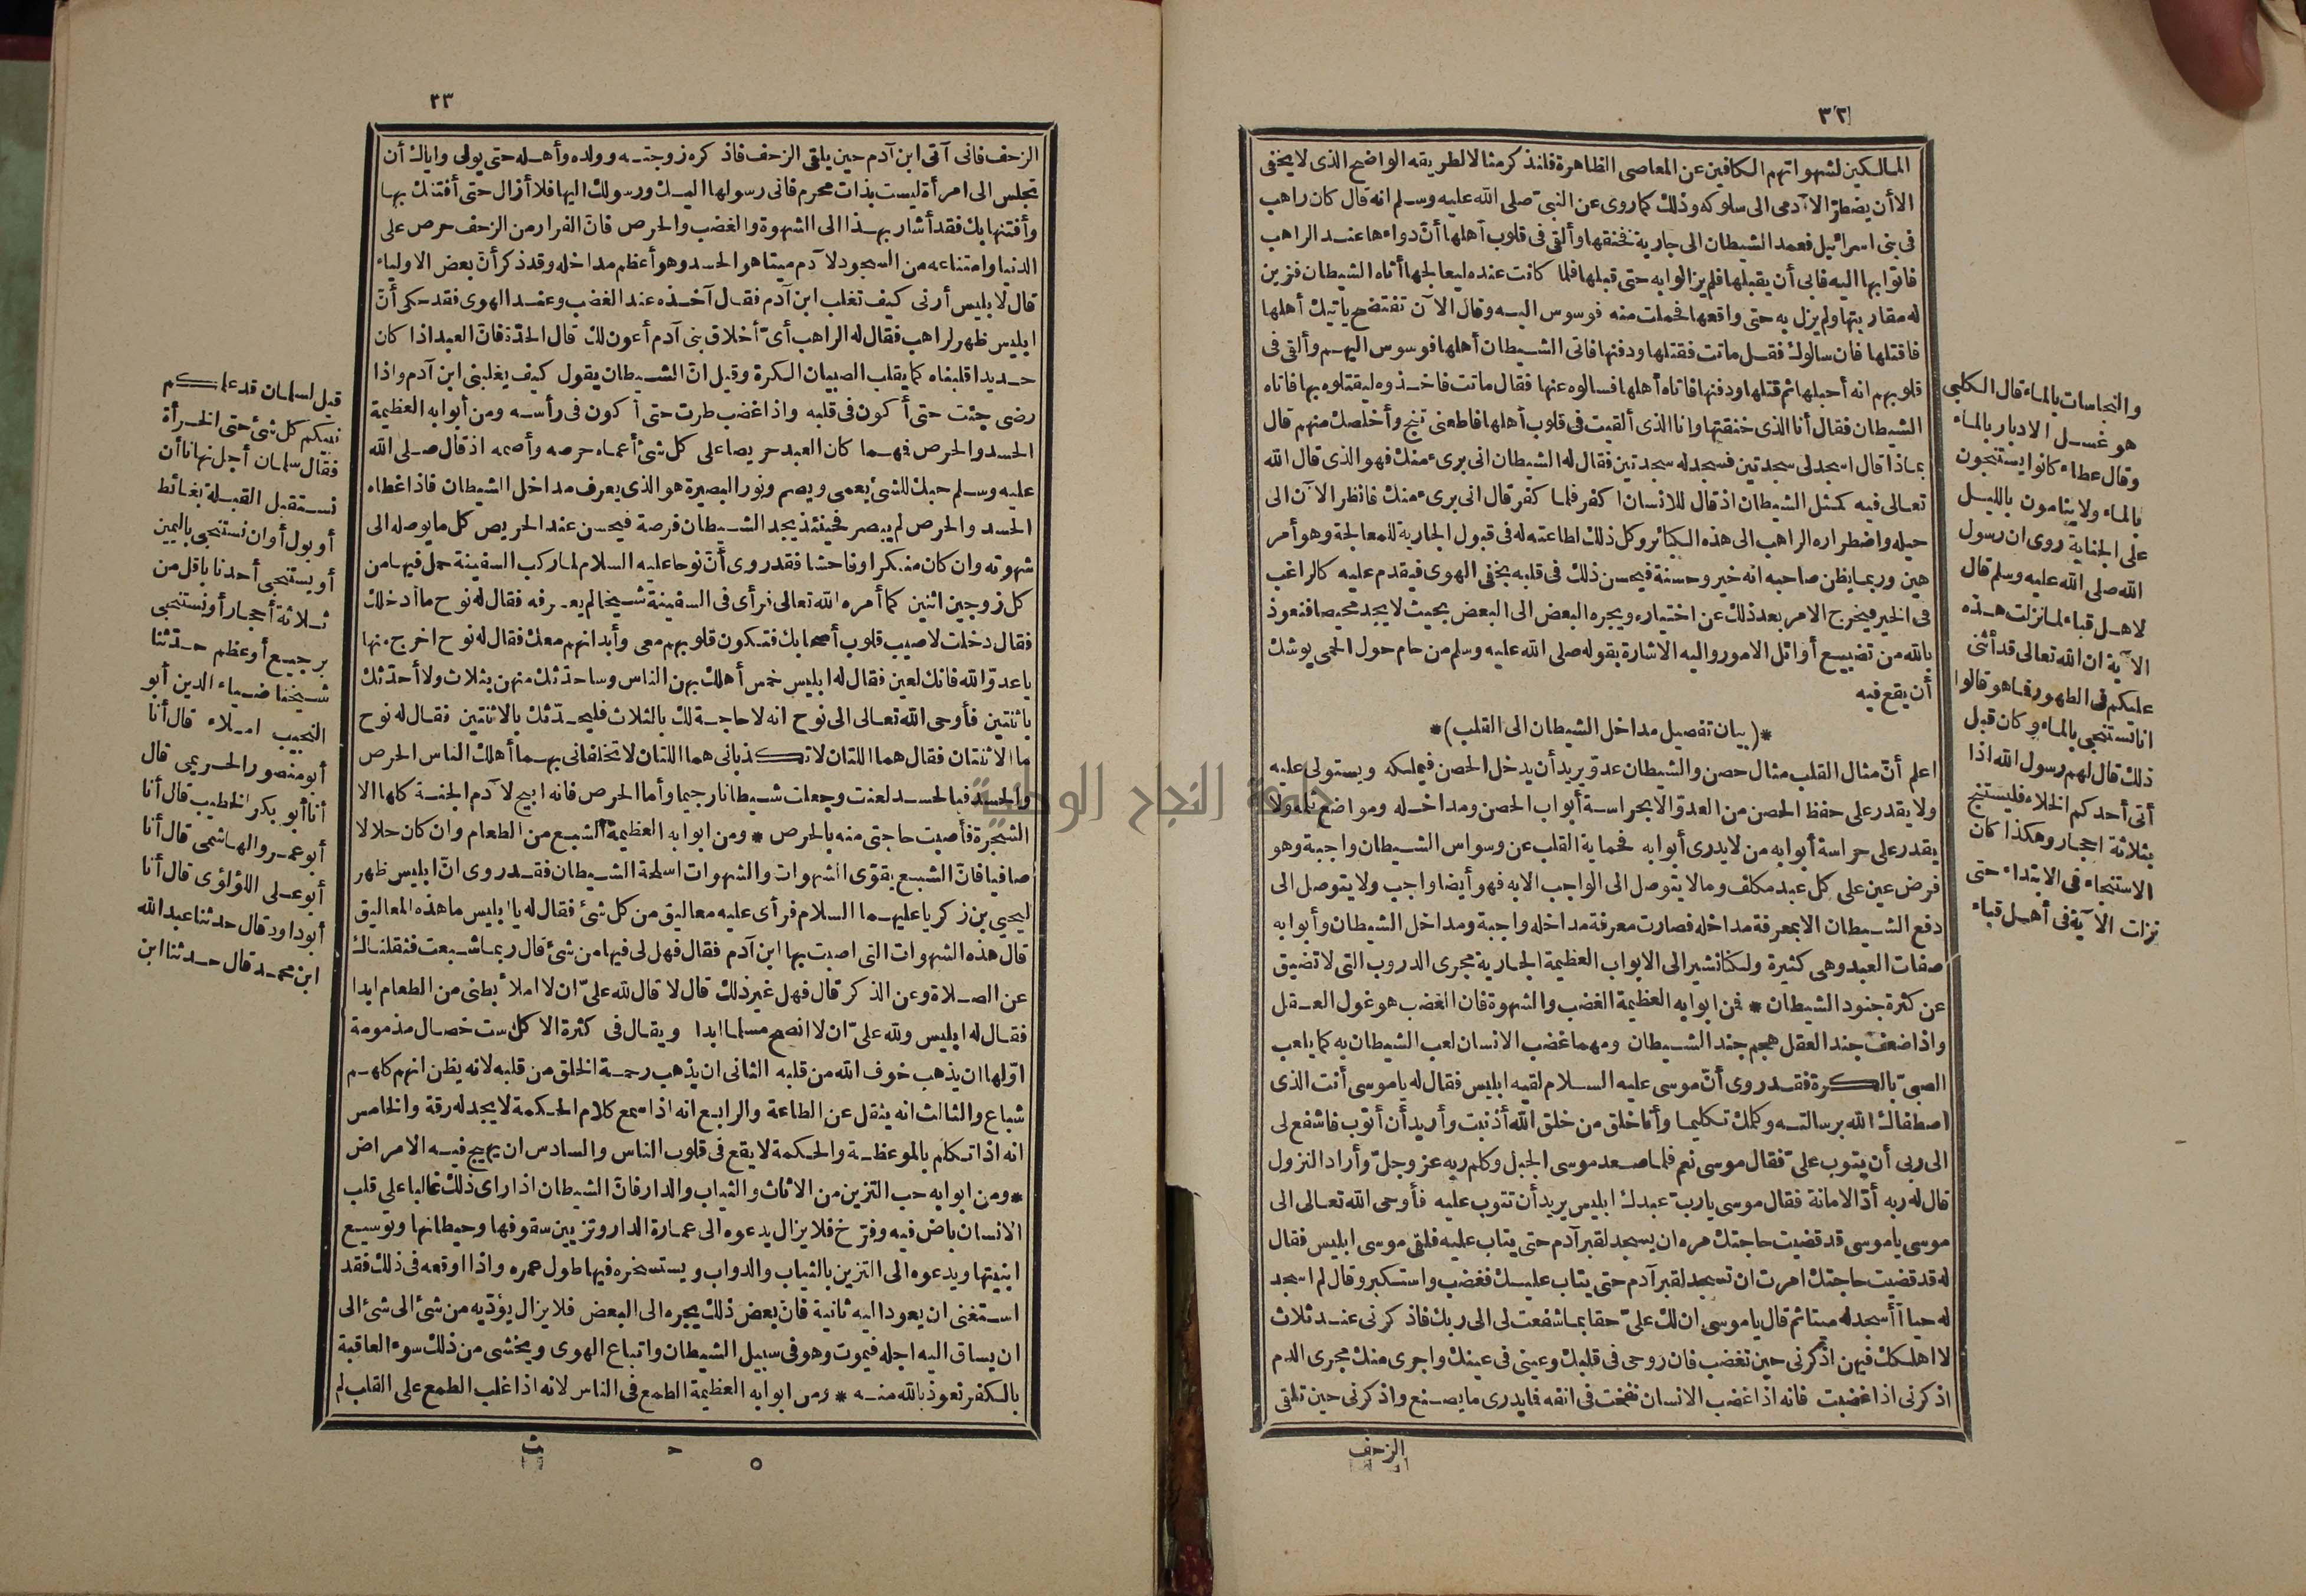 ٣٢
المالكين لشهواتهم الكافين عن المعاصى الظاهرة فلنذكر مثالا لطريقه الواضح الذى لا يخفى
الا أن يضطرّ الآدمى الى سلوكه وذلك كما روى عن النبىّ صلى الله عليه وسلم انه قال كان راهب
فى بنى اسرائيل فعمد الشيطان الى جارية فخنقها وألقى فى قلوب أهلها أنّ دواءها عند الراهب
فاتوا بها اليه فابى أن يقبلها فلم يزالوا به حتى قبلها فلما كانت عنده ليعالجها أتاه الشيطان فزين
له مقاربتها ولم يزل به حتى واقعها فحملت منه فوسوس اليه وقال الآن تفتضح يأتيك أهلها
فاقتلها فان سألوك فقل ماتت فقتلها ودفنها فاتى الشيطان أهلها فوسوس اليهم وألقى فى
قلوبهم انه أحبلها ثم قتلها ودفنها فاتاه أهلها فسالوه عنها فقال ماتت فاخذوه ليقتلوه بها فاتاه
الشيطان فقال أنا الذى خنقتها وانا الذى ألقيت فى قلوب أهلها فاطعنى تنج وأخلصك منهم قال
بماذا قال اسجد لى سجدتين فسجد له سجدتين فقال له الشيطان انى برىء منك فهو الذى قال الله
تعالى فيه كمثل الشيطان اذ قال للانسان اكفر فلما كفر قال انى برىء منك فانظر الآن الى
حيله واضطراره الراهب الى هذه الكبائر وكل ذلك اطاعته له فى قبول الجارية للمعالجة وهو أمر
هين وربما يظن صاحبه انه خير وحسنة فيحسن ذلك فى قلبه بخفى الهوى فيقدم عليه كالراغب
فى الخير فيخرج الامر بعد ذلك عن اختياره ويجره البعض الى البعض بحيث لا يجد محيصا فنعوذ
بالله من تضييع أوائل الامور واليه الاشارة بقوله صلى الله عليه وسلم من حام حول الحمى يوشك
أن يقع فيه
*(بيان تفصيل مداخل الشيطان الى القلب)*
اعلم أنّ مثال القلب مثال حصن والشيطان عدوّ يريد أن يدخل الحصن فيملكه ويستولى عليه
ولا يقدر على حفظ الحصن من العدوّ الا بحراسة أبواب الحصن ومداخله ومواضع ثلمه ولا
يقدر على حراسة أبوابه من لا يدرى أبوابه فحماية القلب عن وسواس الشيطان واجبة وهو
فرض عين على كل عبد مكلف وما لا يتوصل الى الواجب الا به فهو أيضا واجب ولا يتوصل الى
دفع الشيطان الا بمعرفة مداخله فصارت معرفة مداخله واجبة ومداخل الشيطان وأبوابه
صفات العبد وهى كثيرة ولكنا نشير الى الابواب العظيمة الجارية مجرى الدروب التى لا تضيق
عن كثرة جنود الشيطان * فمن ابوابه العظيمة الغضب والشهوة فان الغضب هو غول العقل
واذا ضعف جند العقل هجم جند الشيطان ومهما غضب الانسان لعب الشيطان به كما يلعب
الصبىّ بالكرة فقد روى أنّ موسى عليه السلام لقيه ابليس فقال له يا موسى أنت الذى
اصطفاك الله برسالته وكلمك تكليما وأنا خلق من خلق الله أذنبت وأريد أن أتوب فاشفع لى
الى ربى أن يتوب علىّ فقال موسى نعم فلما صعد موسى الجبل وكلم ربه عز وجلّ وأراد النزول
قال له ربه أدّ الامانة فقال موسى يا ربّ عبدك ابليس يريد أن تتوب عليه فأوحى الله تعالى الى
موسى يا موسى قد قضيت حاجتك مره ان يسجد لقبر آدم حتى يتاب عليه فلقى موسى ابليس فقال
له قد قضيت حاجتك امرت ان تسجد لقبر آدم حتى يتاب عليك فغضب واستكبر وقال لم اسجد
له حيا أأسجد له ميتا ثم قال يا موسى ان لك علىّ حقا بما شفعت لى الى ربك فاذكرنى عند ثلاث
لا اهلكك فيهن اذكرنى حين تغضب فان روحى فى قلبك وعينى فى عينك واجرى منك مجرى الدم
اذكرنى اذا غضبت فانه اذا غضب الانسان نفخت فى انفه فما يدرى ما يصنع واذكرنى حين تلقى
الزحف
والنجاسات بالماء قال الكلبى
هو غسل الادبار بالماء
وقال عطاء كانوا يستنجون
بالماء ولا ينامون بالليل
على الجنابة روى ان رسول
الله صلى الله عليه وسلم قال
لاهل قباء لما نزلت هذه
الآية ان الله تعالى قد أثنى
عليكم فى الطهور فما هو قالوا
انا نستنجى بالماء وكان قبل
ذلك قال لهم رسول الله اذا
أتى أحدكم الخلاء فليستنج
بثلاثة احجار وهكذا كان
الاستنجاء فى الابتداء حتى
نزلت الآية فى أهل قباء
٣٣
الزحف فانى آتى ابن آدم حين يلقى الزحف فاذكره زوجته وولده وأهله حتى يولى واياك أن
تجلس الى امرأة ليست بذات محرم فانى رسولها اليك ورسولك اليها فلا أزال حتى أفتنك بها
وأفتنها بك فقد أشار بهذا الى الشهوة والغضب والحرص فانّ الفرار من الزحف حرص على
الدنيا وامتناعه من السجود لآدم ميتا هو الحسد وهو أعظم مداخله وقد ذكر أنّ بعض الاولياء
قال لابليس أرنى كيف تغلب ابن آدم فقال آخذه عند الغضب وعند الهوى فقد حكى أنّ
ابليس ظهر لراهب فقال له الراهب أىّ أخلاق بنى آدم أعون لك قال الحدّة فانّ العبد اذا كان
حديدا قلبناه كما يقلب الصبيان الكرة وقيل انّ الشيطان يقول كيف يغلبنى ابن آدم واذا
رضى جئت حتى أكون فى قلبه واذا غضب طرت حتى أكون فى رأسه ومن أبوابه العظيمة
الحسد والحرص فمهما كان العبد حريصا على كل شئ أعماه حرصه وأصمه اذ قال صلى الله
عليه وسلم حبك للشئ يعمى ويصم ونور البصيرة هو الذى يعرف مداخل الشيطان فاذا غطاه
الحسد والحرص لم يبصر فحينئذ يجد الشيطان فرصة فيحسن عند الحريص كل ما يوصله الى
شهوته وان كان منكرا وفاحشا فقد روى أنّ نوحا عليه السلام لما ركب السفينة حمل فيها من
كل زوجين اثنين كما أمره الله تعالى فرأى فى السفينة شيخا لم يعرفه فقال له نوح ما أدخلك
فقال دخلت لاصيب قلوب أصحابك فتكون قلوبهم معى وأبدانهم معك فقال له نوح اخرج منها
يا عدوّ الله فانك لعين فقال له ابليس خمس أهلك بهن الناس وساحدّثك منهن بثلاث ولا أحدّثك
باثنتين فأوحى الله تعالى الى نوح انه لا حاجة لك بالثلاث فليحدّثك بالاثنتين فقال له نوح
ما الاثنتان فقال هما اللتان لا تكذبانى هما اللتان لا تخلفانى بهما أهلك الناس الحرص
والحسد فبالحسد لعنت وجعلت شيطانا رجيما وأما الحرص فانه ابيح لآدم الجنة كلها الا
الشجرة فأصبت حاجتى منه بالحرص * ومن ابوابه العظيمة الشبع من الطعام وان كان حلالا
صافيا فانّ الشبع يقوّى الشهوات والشهوات اسلحة الشيطان فقد روى انّ ابليس ظهر
ليحيى بن زكريا عليهما السلام فرأى عليه معاليق من كل شئ فقال له يا ابليس ما هذه المعاليق
قال هذه الشهوات التى اصبت بها ابن آدم فقال فهل لى فيها من شئ قال ربما شبعت فثقلناك
عن الصلاة وعن الذكر قال فهل غير ذلك قال لا قال لله علىّ ان لا املأ بطنى من الطعام ابدا
فقال له ابليس ولله علىّ ان لا انصح مسلما ابدا ويقال فى كثرة الاكل ست خصال مذمومة
اوّلها ان يذهب خوف الله من قلبه الثانى ان يذهب رحمة الخلق من قلبه لانه يظن انهم كلهم
شباع والثالث انه يثقل عن الطاعة والرابع انه اذا سمع كلام الحكمة لا يجد له رقة والخامس
انه اذا تكلم بالموعظة والحكمة لا يقع فى قلوب الناس والسادس ان يهيج فيه الامراض
* ومن ابوابه حب التزين من الاثاث والثياب والدار فانّ الشيطان اذا راى ذلك غالبا على قلب
الانسان باض فيه وفرّخ فلا يزال يدعوه الى عمارة الدار وتزيين سقوفها وحيطانها وتوسيع
ابنيتها ويدعوه الى التزين بالثياب والدواب ويستسخره فيها طول عمره واذا اوقعه فى ذلك فقد
استغنى ان يعود اليه ثانية فانّ بعض ذلك يجره الى البعض فلا يزال يؤدّيه من شئ الى شئ الى
ان يساق اليه اجله فيموت وهو فى سبيل الشيطان واتباع الهوى ويخشى من ذلك سوء العاقبة
بالكفر نعوذ بالله منه * ومن ابوابه العظيمة الطمع فى الناس لانه اذا غلب الطمع على القلب لم
٥ ح ث
قيل لسلمان قد علمكم
نبيكم كل شئ حتى الخرأة
فقال سلمان أجل نهانا أن
نستقبل القبلة بغائط
أو بول أو ان نستنجى باليمين
أو يستنجى أحدنا باقل من
ثلاثة أحجار أو نستنجى
برجيع أو عظم حدّثنا
شيخنا ضياء الدين أبو
النجيب املاء قال أنا
أبو منصور الحريمى قال
أنا أبو بكر الخطيب قال أنا
أبو عمرو الهاشمى قال أنا
أبو على اللؤلؤى قال أنا
أبو داود قال حدثنا عبد الله
ابن محمد قال حدثنا ابن
جامعة النجاح الوطنية